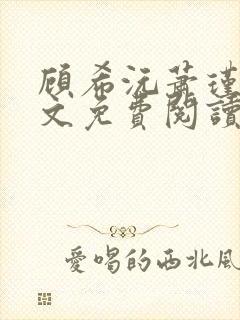 顧希沅蕭瑾
文免費閱讀
愛唱的西北風